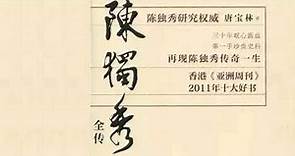 陳獨秀
全传
陈独秀研究权威 唐宝林 著
三十年耿心真血
第一手珍贵史料
再现陈独秀传奇一生
香港《亚洲周刊》
2011年十大好书